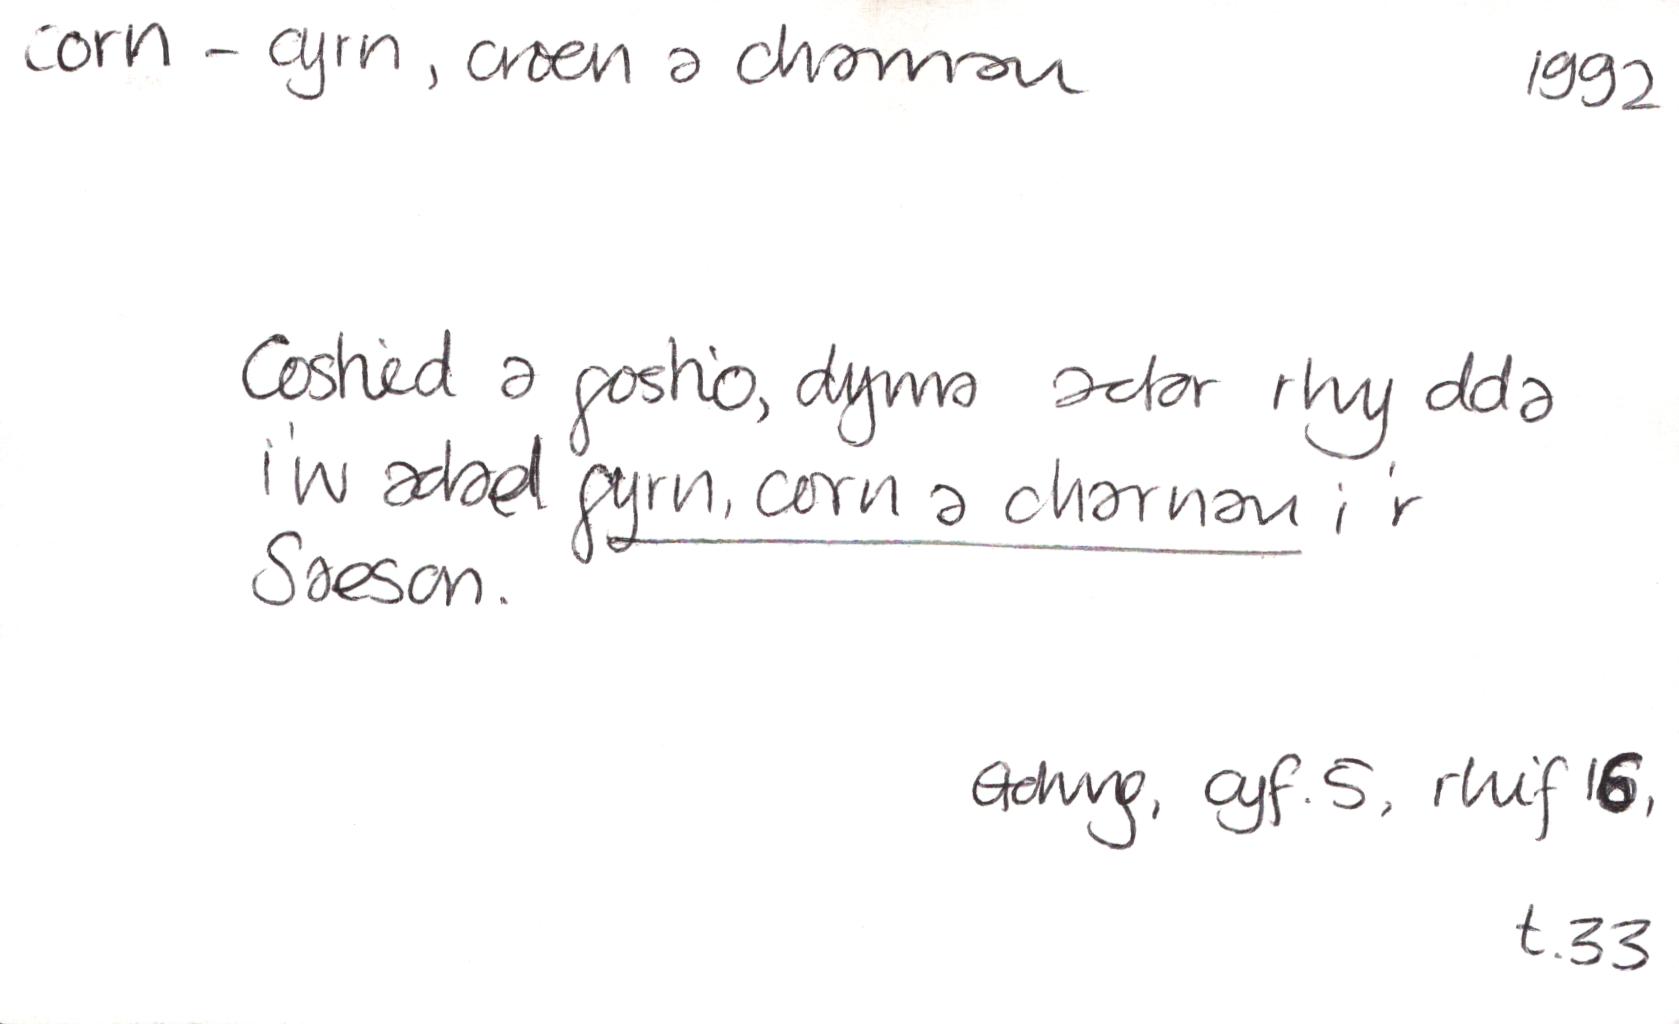 corn - cyrn, croen a charnau 1992
Coshied a goshio, dyma actor rhy dda
i'w adael gyrn, corn a charnau i'r
Saeson.
Golwg, cyf. 5, rhif 16,
t.33